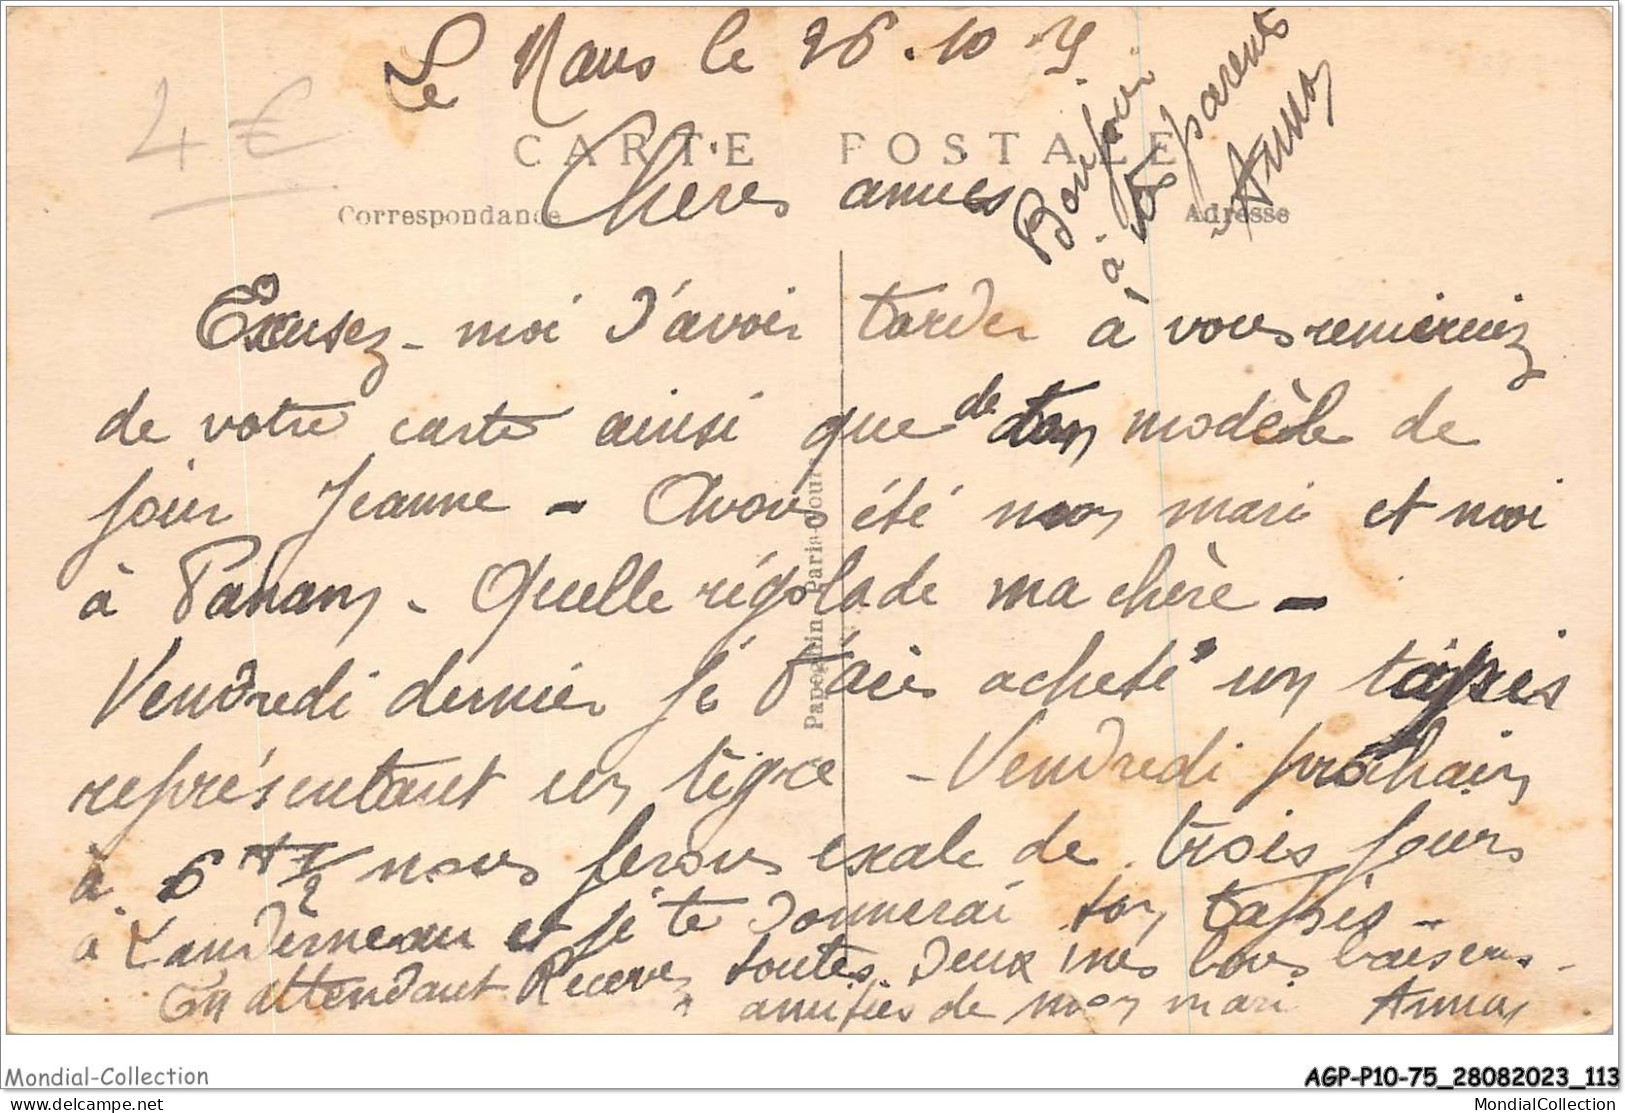 Le Mans le 26.10.
4 €
CARTE POSTALE
Chères amies
Correspondance
Adresse
Bonjour
à vos parents
Anna
Excusez-moi d'avoir tarder à vous remerciez
de votre carte ainsi que de ton modèle de
jour Jeanne - Avons été mon mari et moi
à Panam - Quelle rigolade ma chère -
Vendredi dernier je t'ais acheté un tapis
représentant un tigre - Vendredi prochain
à 6 H 1/2 nous ferons escale de trois jours
à Landerneau et je te donnerai ton tapis -
En attendant Recevez toutes deux mes bons baisers -
" amitiés de mon mari Anna
Papeghin, Paris-Tours
Mondial-Collection
AGP-P10-75_28082023_113
delcampe.net
MondialCollection